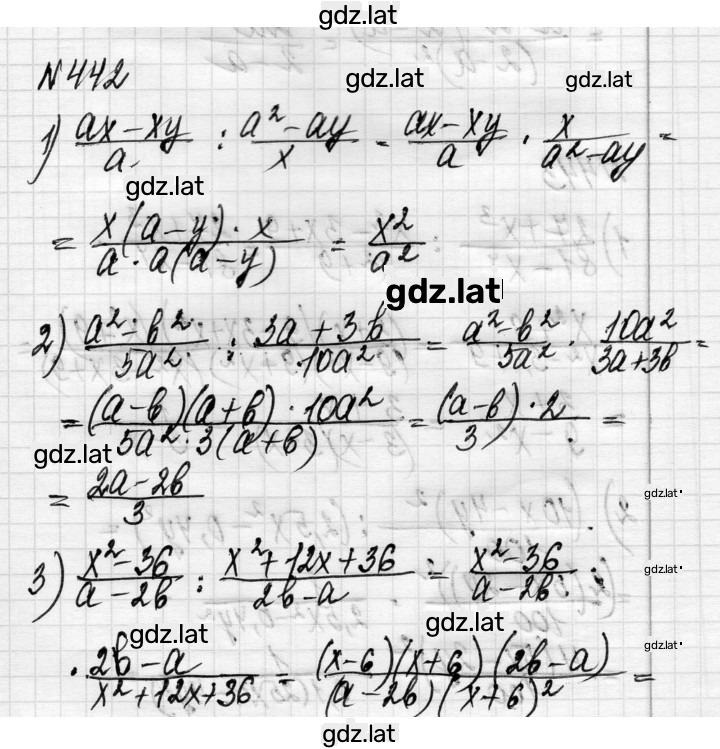 gdz.lat
N 442
gdz.lat gdz.lat
1) (ax-xy)/a : (a²-ay)/x = (ax-xy)/a · x/(a²-ay) =
gdz.lat
= (x(a-y)·x)/(a·a(a-y)) = x²/a²
gdz.lat
2) (a²-b²)/(5a²) : (3a+3b)/(10a²) = (a²-b²)/(5a²) · (10a²)/(3a+3b) =
= ((a-b)(a+b)·10a²)/(5a²·3(a+b)) = ((a-b)·2)/3 =
gdz.lat
= (2a-2b)/3
gdz.lat
3) (x²-36)/(a-2b) : (x²+12x+36)/(2b-a) = (x²-36)/(a-2b) ·
gdz.lat
gdz.lat gdz.lat
· (2b-a)/(x²+12x+36) = ((x-6)(x+6)(2b-a))/((a-2b)(x+6)²) =
gdz.lat
gdz.lat